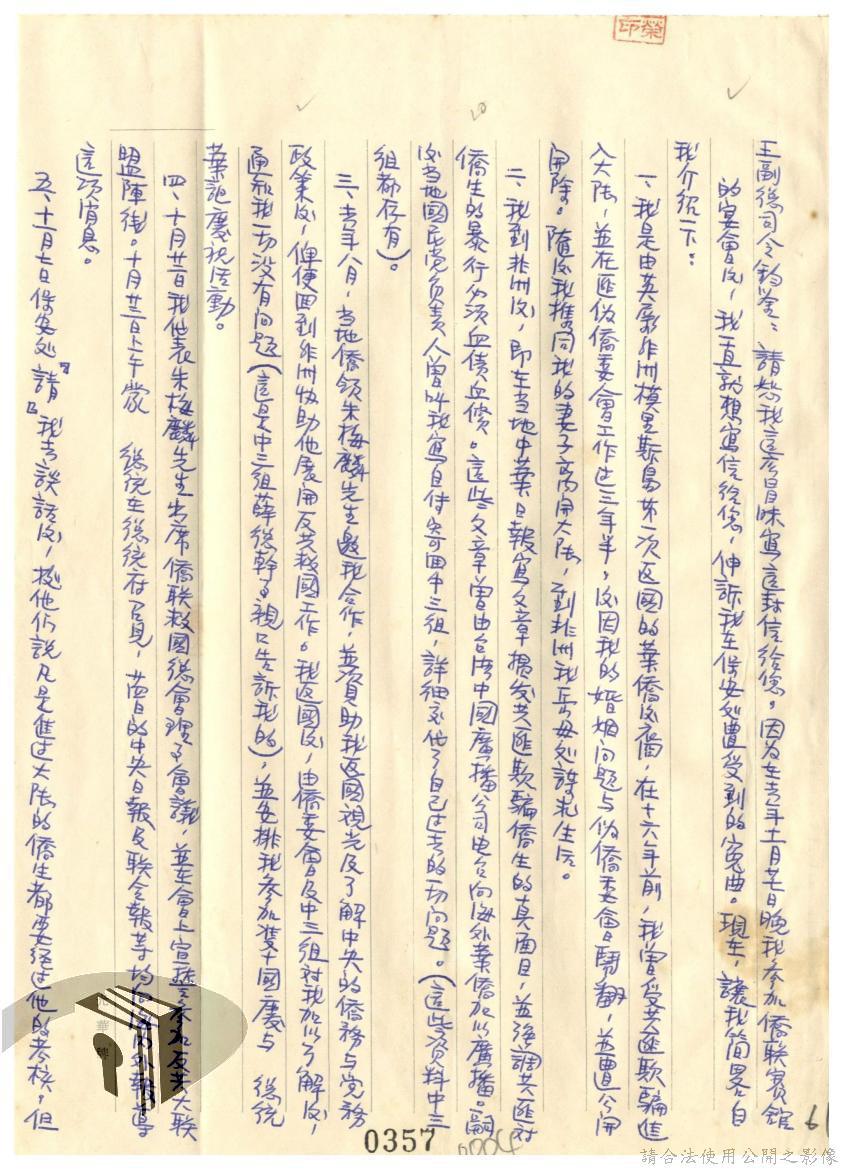 榮
印
王副總司令鈞鑒:請恕我這麼冒昧寫這封信給您。因为在去年十一月廿七日晚我参加僑联賓館
的宴會後,我一直就想寫信给您,伸訴我在保安处遭受到的寃曲。現在,讓我簡畧自
我介紹一下:
一、我是由英屬非洲模里斯島第一次返國的華僑后裔,在十六年前,我曾受共匪欺騙進
入大陆,並在匪伪僑委會工作过三年半,後因我的婚姻问题与伪僑委會鬧翻,並遭公開
開除。随後我携同我的妻子离開大陆,到非洲我岳母处謀求生活。
二、我到非洲後,即在当地中華日報寫文章揭发共匪欺騙僑生的真面目,並強調共匪对
僑生的暴行必须血債血償。這些文章曾由台湾中國廣播公司电台向海外華僑加以廣播。嗣
後当地國民党负责人曾叫我寫自传寄回中三組,詳细交代了自己过去的一切問題。(這些资料中三
組都存有)。
三、去年八月,当地僑領朱梅麟先生邀我合作,並资助我返國視察及了解中央的僑務与党務
政策後,俾便回到非洲协助他展開反共救國工作。我返國後,由僑委會及中三組对我加以了解後,
通知我一切没有问题(這是中三組薛總幹事親口告訴我的),並安排我参加双十國慶与 總統
華誕慶祝活動。
四、十月廿一日我代表朱梅麟先生出席僑联救國總會理事會議,並在會上宣讀参加反共大联
盟陣线。十月廿三日上午蒙 總統在總统府召見,當日的中央日報及联合報等均向海内外報導
這項消息。
五、十一月七日保安处『請』我去談話後,據他们說凡是進过大陆的僑生都要经过他的考核,但
0357
61
請合法使用公開之影像